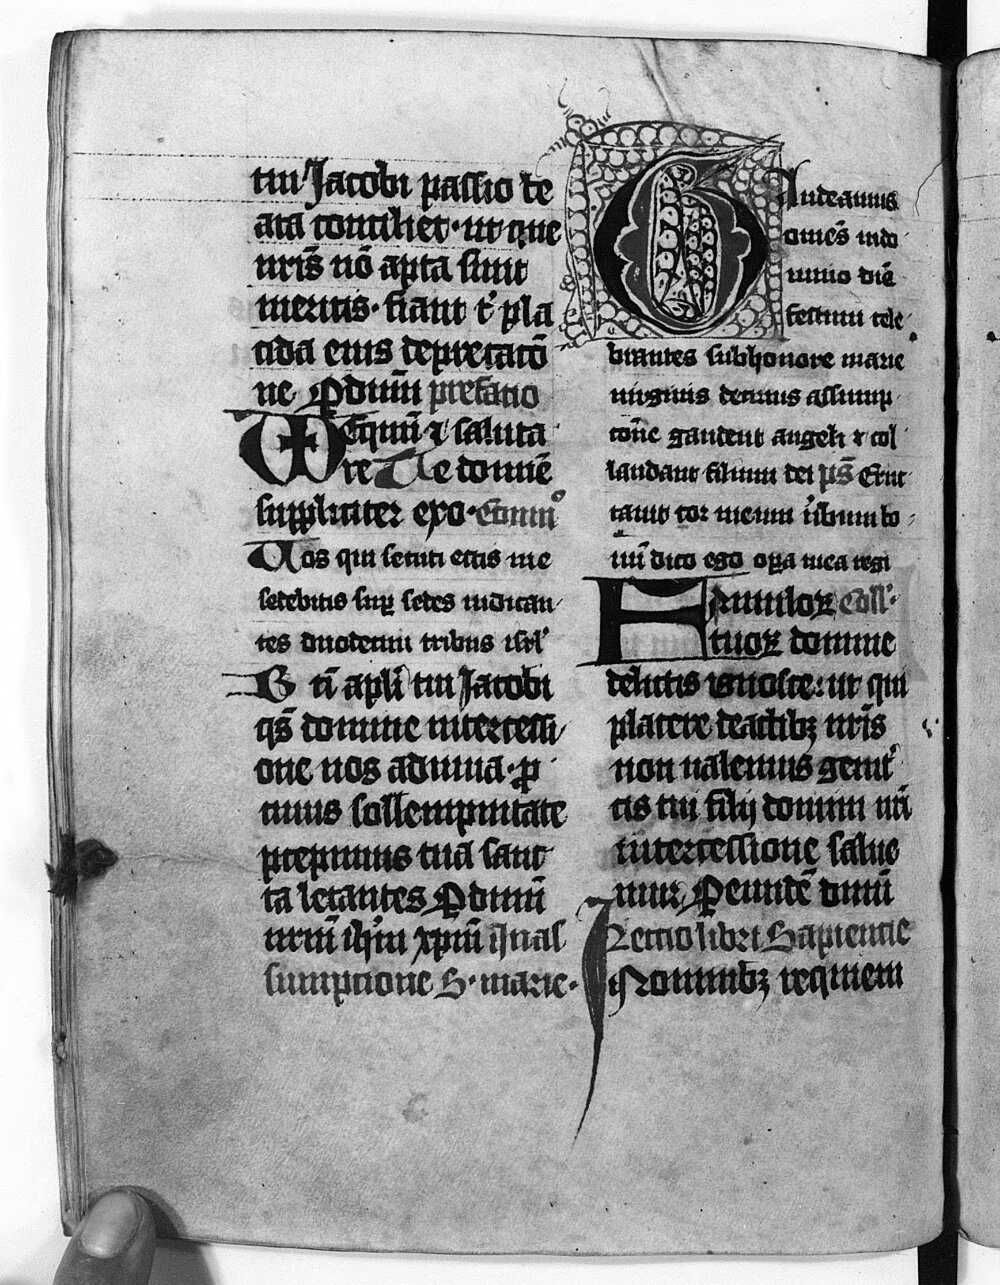 tui Jacobi passio be
ata conciliet · ut que
nris̄ nō apta sunt
meritis · fiant t͛ pla
cida eius deprecatō
ne Pdnm̄ prefatio
VEqum̄ ⁊ saluta
re Te domīe
suppliciter exo · Com̄o
Uos qui secuti estis me
sedebitis sup sedes iudican
tes duodecim tribus isrl̕
B ti̅ apl̅i tui Jacobi
qs̄ domine intercessi
one nos adiuua · p̱
cuius sollempnitate
prepimus tua sanc
ta letantes P dnm̄
nrm̄ ih̅m xpm̄ Jn as
sumptione S · marie ·
Gaudeamus
omēs in do
mino diē
festum cele
brantes sub honore marie
uirginis de cuius assump
tōne gaudent angeli ⁊ col
laudant filium dei ps̄ Eruc
tauit cor meum u̕bum bo
nū dico ego opa mea regi
Famuloꝝ Coll̕ ·
tuoꝝ domine
delictis ignosce : ut qui
placere de actibꝫ nris̄
non ualemus genit͛
cis tui filij domini nri̅
intercessione salue
mur P eundē dnm̄
Lectio libri Sapientie
JN omnibꝫ requiem